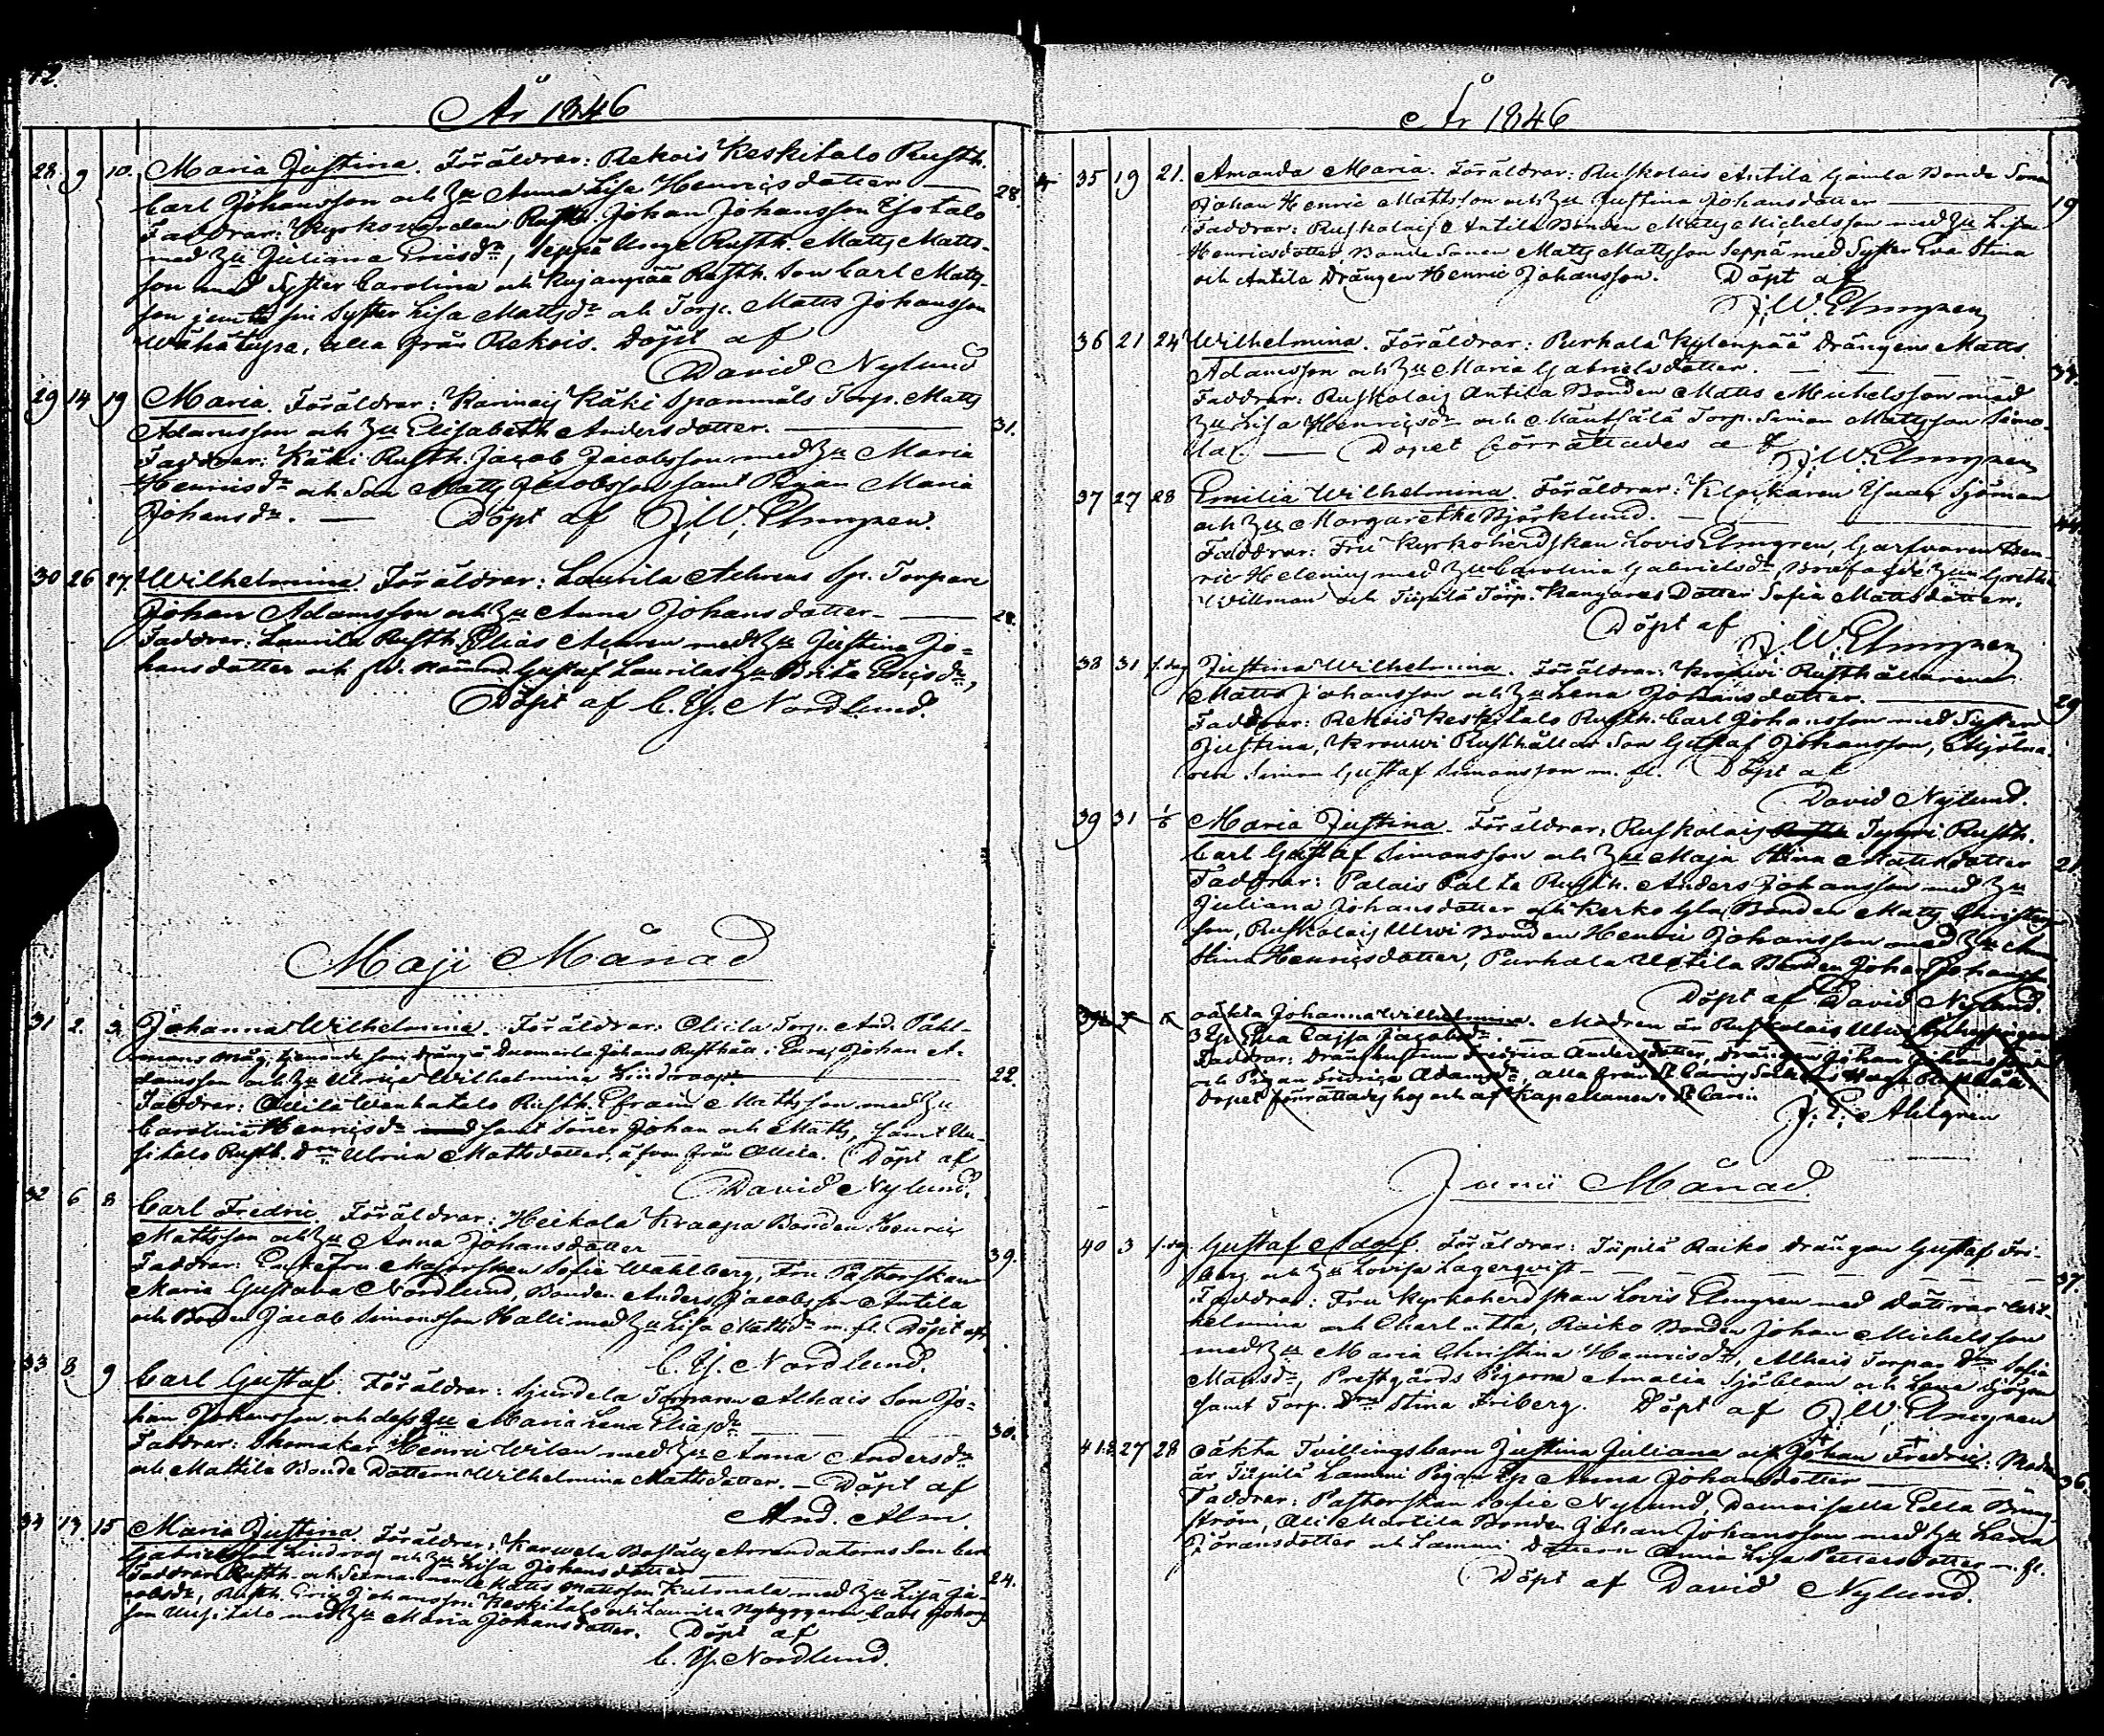 12.
År 1846
28. 9 10. Maria Justina. Föräldrar: Rekois Keskitalo Rusth.
Carl Johansson och Hu Anna Lisa Henricsdotter — 28.
Faddrar: Kyrkovärden Rusth. Johan Johansson Isotalo
med Hu Juliana Ericsdr, Seppä Unge Rusth. Matts Matts-
son med Syster Carolina och Kujanpää Rusth. Son Carl Matts-
son jemte sin Syster Lisa Mattsdr och Torp. Matts Johansson
Wähätupa, alla från Rekois. Döpt af
David Nylund
29 14 19 Maria. Föräldrar: Karinais Käki Spanmåls Torp. Matts
Adamsson och Hu Elisabeth Andersdotter. — 31.
Faddrar: Käki Rusth. Jacob Jacobsson med Hu Maria
Henricsdr och Son Matts Jacobsson samt Pigan Maria
Johansdr. — Döpt af J. W. Elmgren.
30 26 27. Wilhelmina. Föräldrar: Laurila Aehrens Sp. Torpare
Johan Adamsson och Hu Anna Johansdotter — 28.
Faddrar: Laurila Rusth. Elias Aehren med Hu Justina Jo-
hansdotter och Gustaf Laurilas Hu Brita Ericsdr,
Döpt af C. H. Nordlund.
Maji Månad
31 2. 3. Johanna Wilhelmina. Föräldrar: Torp. And. Påhl-
mans måg, tjenande som dräng å Johans Rusthåll i Eura, Johan A-
damsson och Hu Ulrica Wilhelmina Lindroos — 22.
Faddrar: Wenhatalo Rusth. Efraim Mattsson med Hu
Carolina Henricsdr samt Söner Johan och Matts, samt Uu-
sitalo Rusth. Dr Ulrica Mattsdotter, äfven från Döpt af
David Nylund.
32 6 8 Carl Fredric. Föräldrar: Heikola Kraapa Bonden Henric
Mattsson och Hu Anna Johansdotter — 39.
Faddrar: Enkefru Majorskan Sofie Wahlberg, Fru Pastorskan
Maria Gustava Nordlund, Bonden Anders Jacobsson Antila
och Bonden Jacob Simonsson Halli med Hu Lisa Mattsdr m. fl. Döpt af
C. H. Nordlund.
33 8. 9 Carl Gustaf. Föräldrar: Sjurdela Torparen Alhais Son Jo-
han Johansson och dess Hu Maria Lena Eliasdr — 30.
Faddrar: Skomakar Henric Wilen med Hu Anna Andersdr
och Mattila Bonde Dottern Wilhelmina Mattsdotter. — Döpt af
And. Alm.
34 13. 15 Maria Justina. Föräldrar: Karwela Boställs Arrendatorns Son Carl
Gabrielsson Lindroos och Hu Lisa Johansdotter — 24.
Faddrar: Rusth. och Sexmannen Matts Mattsson Kulmala med Hu Lisa Ja-
cobsdr, Rusth. Eric Johansson Keskitalo och Laurila Nybyggaren Carl Johans-
son Uusitalo med Hu Maria Johansdotter. Döpt af
C. H. Nordlund.
År 1846
35 19 21. Amanda Maria. Föräldrar: Ruskolais Antila Gamla Bonde Sonen
Johan Henric Mattsson och Hu Justina Johansdotter — 19
Faddrar: Ruskolais Antila Bonden Matts Michelsson med Hu Lisa
Henricsdotter Bonde Sonen Matts Mattsson Seppä med Syster Eva Stina
och Antila Drängen Henric Johansson. Döpt af
J. W. Elmgren
36 21 24 Wilhelmina. Föräldrar: Purhala Kylenpää Drängen Matts
Adamsson och Hu Maria Gabrielsdotter. — 34.
Faddrar: Ruskolais Antila Bonden Matts Michelsson med
Hu Lisa Henricsdr och Mäntsälä Torp. Simon Mattsson Simo-
la. — Dopet förrättades af J. W. Elmgren
37 27 28 Emilia Wilhelmina. Föräldrar: Klockaren Isaac Sjöman
och Hu Margaretha Björklund. — 44
Faddrar: Fru Kyrkoherdskan Lovis Elmgren, Garfvaren Hen-
ric Helenius med Hu Carolina Gabrielsdr, Greta
Willman och Tüpilä Torp. Kangares Dotter Sofia Mattsdotter.
Döpt af J. W. Elmgren
38 31 s.dag Justina Wilhelmina. Föräldrar: Krouwi Rusthållaren
Matts Johansson och Hu Lena Johansdotter. — 29
Faddrar: Rekois Keskitalo Rusth. Carl Johansson med Syster
Justina, Krouwi Rusthållar Son Gustaf Johansson, Mjölna-
ren Simon Gustaf Simonsson m. fl. Döpt af
David Nylund.
39 31 1/6 Maria Justina. Föräldrar: Ruskolais Tyyri Rusth.
Carl Gustaf Simonsson och Hu Maja Stina Mattsdotter 21
Faddrar: Palais Palta Rusth. Anders Johansson med Hu
Juliana Johansdotter och Kerkola Bonden Matts Christers-
son, Ruskolais Ulwi Bonden Henric Johansson med Hu Anna
Stina Henricsdotter, Purhala Uotila Bonden Johan Johansson
Döpt af David Nylund.
oäkta Johanna Wilhelmina. Modren är Ruskolais Ulwi
Ep Eva Cajsa Jacobsdr
Faddrar: Drängs hustrun Fredrica Andersdotter, Drängen Johan Johansson
och Pigan Fredrica Adamsdr, alla från St Carins Socken
Dopet förrättades hos och af Kapellanen i St Carins
J. E. Ahlgren
Junii Månad
40 3 s.dag. Gustaf Adolf. Föräldrar: Tüpilä Raiko Drängen Gustaf Fri-
berg och Hu Lovisa Lagerqvist — 37.
Faddrar: Fru Kyrkoherdskan Lovis Elmgren med Döttrar Wil-
helmina och Charlotta, Raiko Bonden Johan Michelsson
med Hu Maria Christina Henricsdr, Alhais Torpar Dr Sofia
Mattsdr, Prestgårds Pigorna Amalia Sjöblom och Lena Sjögren
samt Torp. Dr Stina Friberg. Döpt af J. W. Elmgren
41 27 28 oäkta Tvillingsbarn Justina Juliana och Johan Fredric: Modren
är Tüpilä Lammi Pigan Ep Anna Johansdotter — 36.
Faddrar: Pastorskan Sofie Nylund, Demoiselle Edla Bäng-
ström, Martila Bonden Johan Johansson med Hu Lena
Göransdotter och Lammi Dottern Anna Lisa Pettersdotter m. fl.
Döpt af David Nylund.